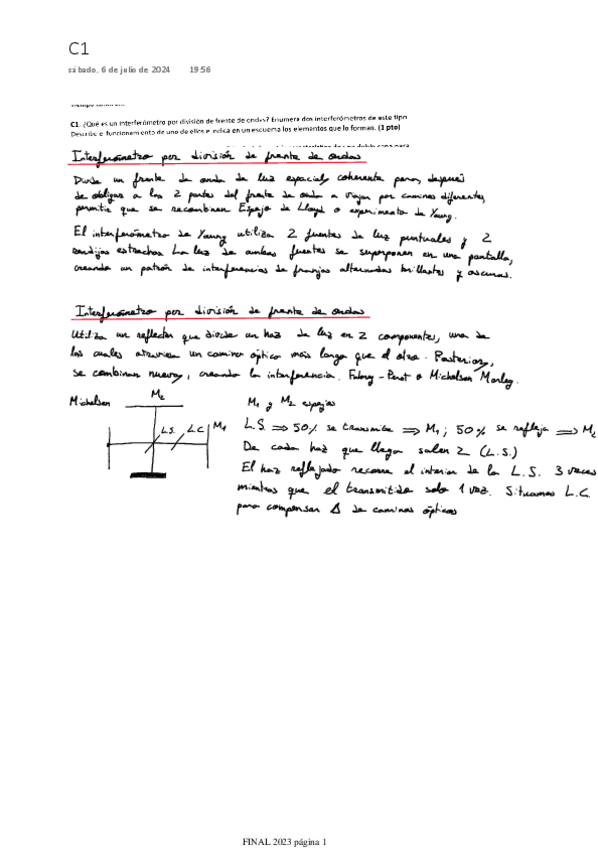 C1
sábado, 6 de julio de 2024 19:56
C1. ¿Qué es un interferómetro por división de frente de ondas? Enumera dos interferómetros de este tipo
Describe el funcionamiento de uno de ellos e indica en un esquema los elementos que lo forman. (1 pto)
Interferómetro por división de frente de ondas
Divide un frente de onda de luz espacial coherente para, después
de obligar a los 2 partes del frente de onda a viajar por caminos diferentes,
permitir que se recombinen Espejo de Lloyd o experimento de Young.
El interferómetro de Young utiliza 2 fuentes de luz puntuales y 2
rendijas estrechas La luz de ambas fuentes se superponen en una pantalla,
creando un patrón de interferencias de franjas alternadas brillantes y oscuras.
Interferómetro por división de frente de ondas
Utiliza un reflector que divide un haz de luz en 2 componentes, una de
las cuales atraviesa un camino óptico más largo que el otro. Posterior,
se combinan nuevo, creando la interferencia. Fabry-Perot o Michelson Morley.
Michelson
M2
L.S. L.C. M1
M1 y M2 espejos
L.S ⇒ 50% se transmite ⇒ M1; 50% se refleja ⇒ M2
De cada haz que llega salen 2 (L.S.)
El haz reflejado recorre el interior de la L.S. 3 veces
mientras que el transmitido solo 1 vez. Situamos L.C.
para compensar Δ de caminos ópticos
FINAL 2023 página 1